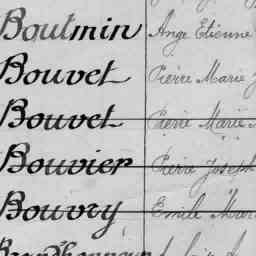 Boutmin Ange Etienne
Bouvet Pierre Marie
Bouvet Pierre Marie
Bouvier Pierre Joseph
Bouvry Emile